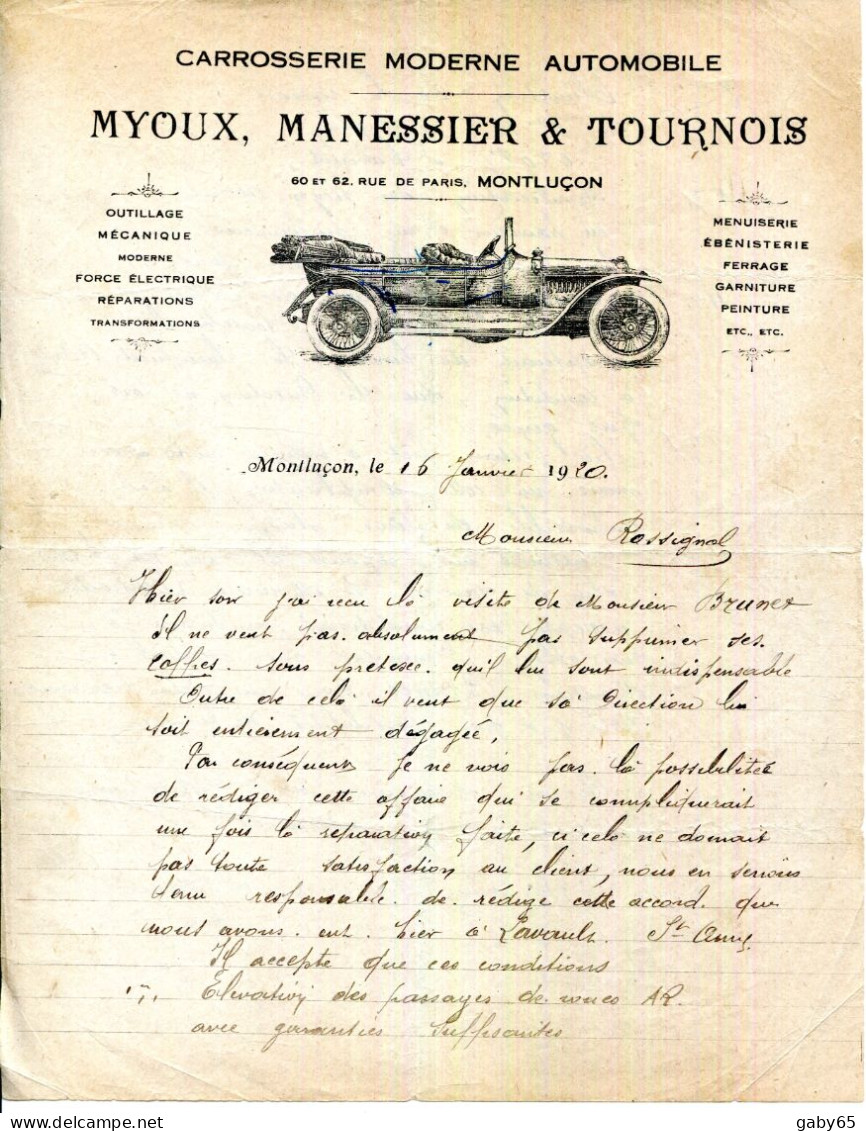 CARROSSERIE MODERNE AUTOMOBILE
MYOUX, MANESSIER & TOURNOIS
60 ET 62, RUE DE PARIS, MONTLUÇON
OUTILLAGE
MÉCANIQUE
MODERNE
FORCE ÉLECTRIQUE
RÉPARATIONS
TRANSFORMATIONS
MENUISERIE
ÉBÉNISTERIE
FERRAGE
GARNITURE
PEINTURE
ETC., ETC.
Montluçon, le 16 Janvier 1920.
Monsieur Rossignol
Hier soir j'ai reçu là visite de Monsieur Brunet
il ne veut pas absolument pas supprimer ses
coffres. sous pretexte qu'il lui sont indispensable
Outre de celà il veut que sà Direction lui
soit entièrement dégagée,
Par conséquent je ne vois pas là possibilitée
de rédiger cette affaire qui se compliquerait
une fois là réparation faite, si celà ne donnait
pas toute satisfaction au client, nous en serions
tenu responsable de rédige cette accord que
nous avons ent. hier à Lavault St Anne
Il accepte que ces conditions
Elevation des passages de roues AR.
avec garanties suffisantes
www.delcampe.net
gaby65